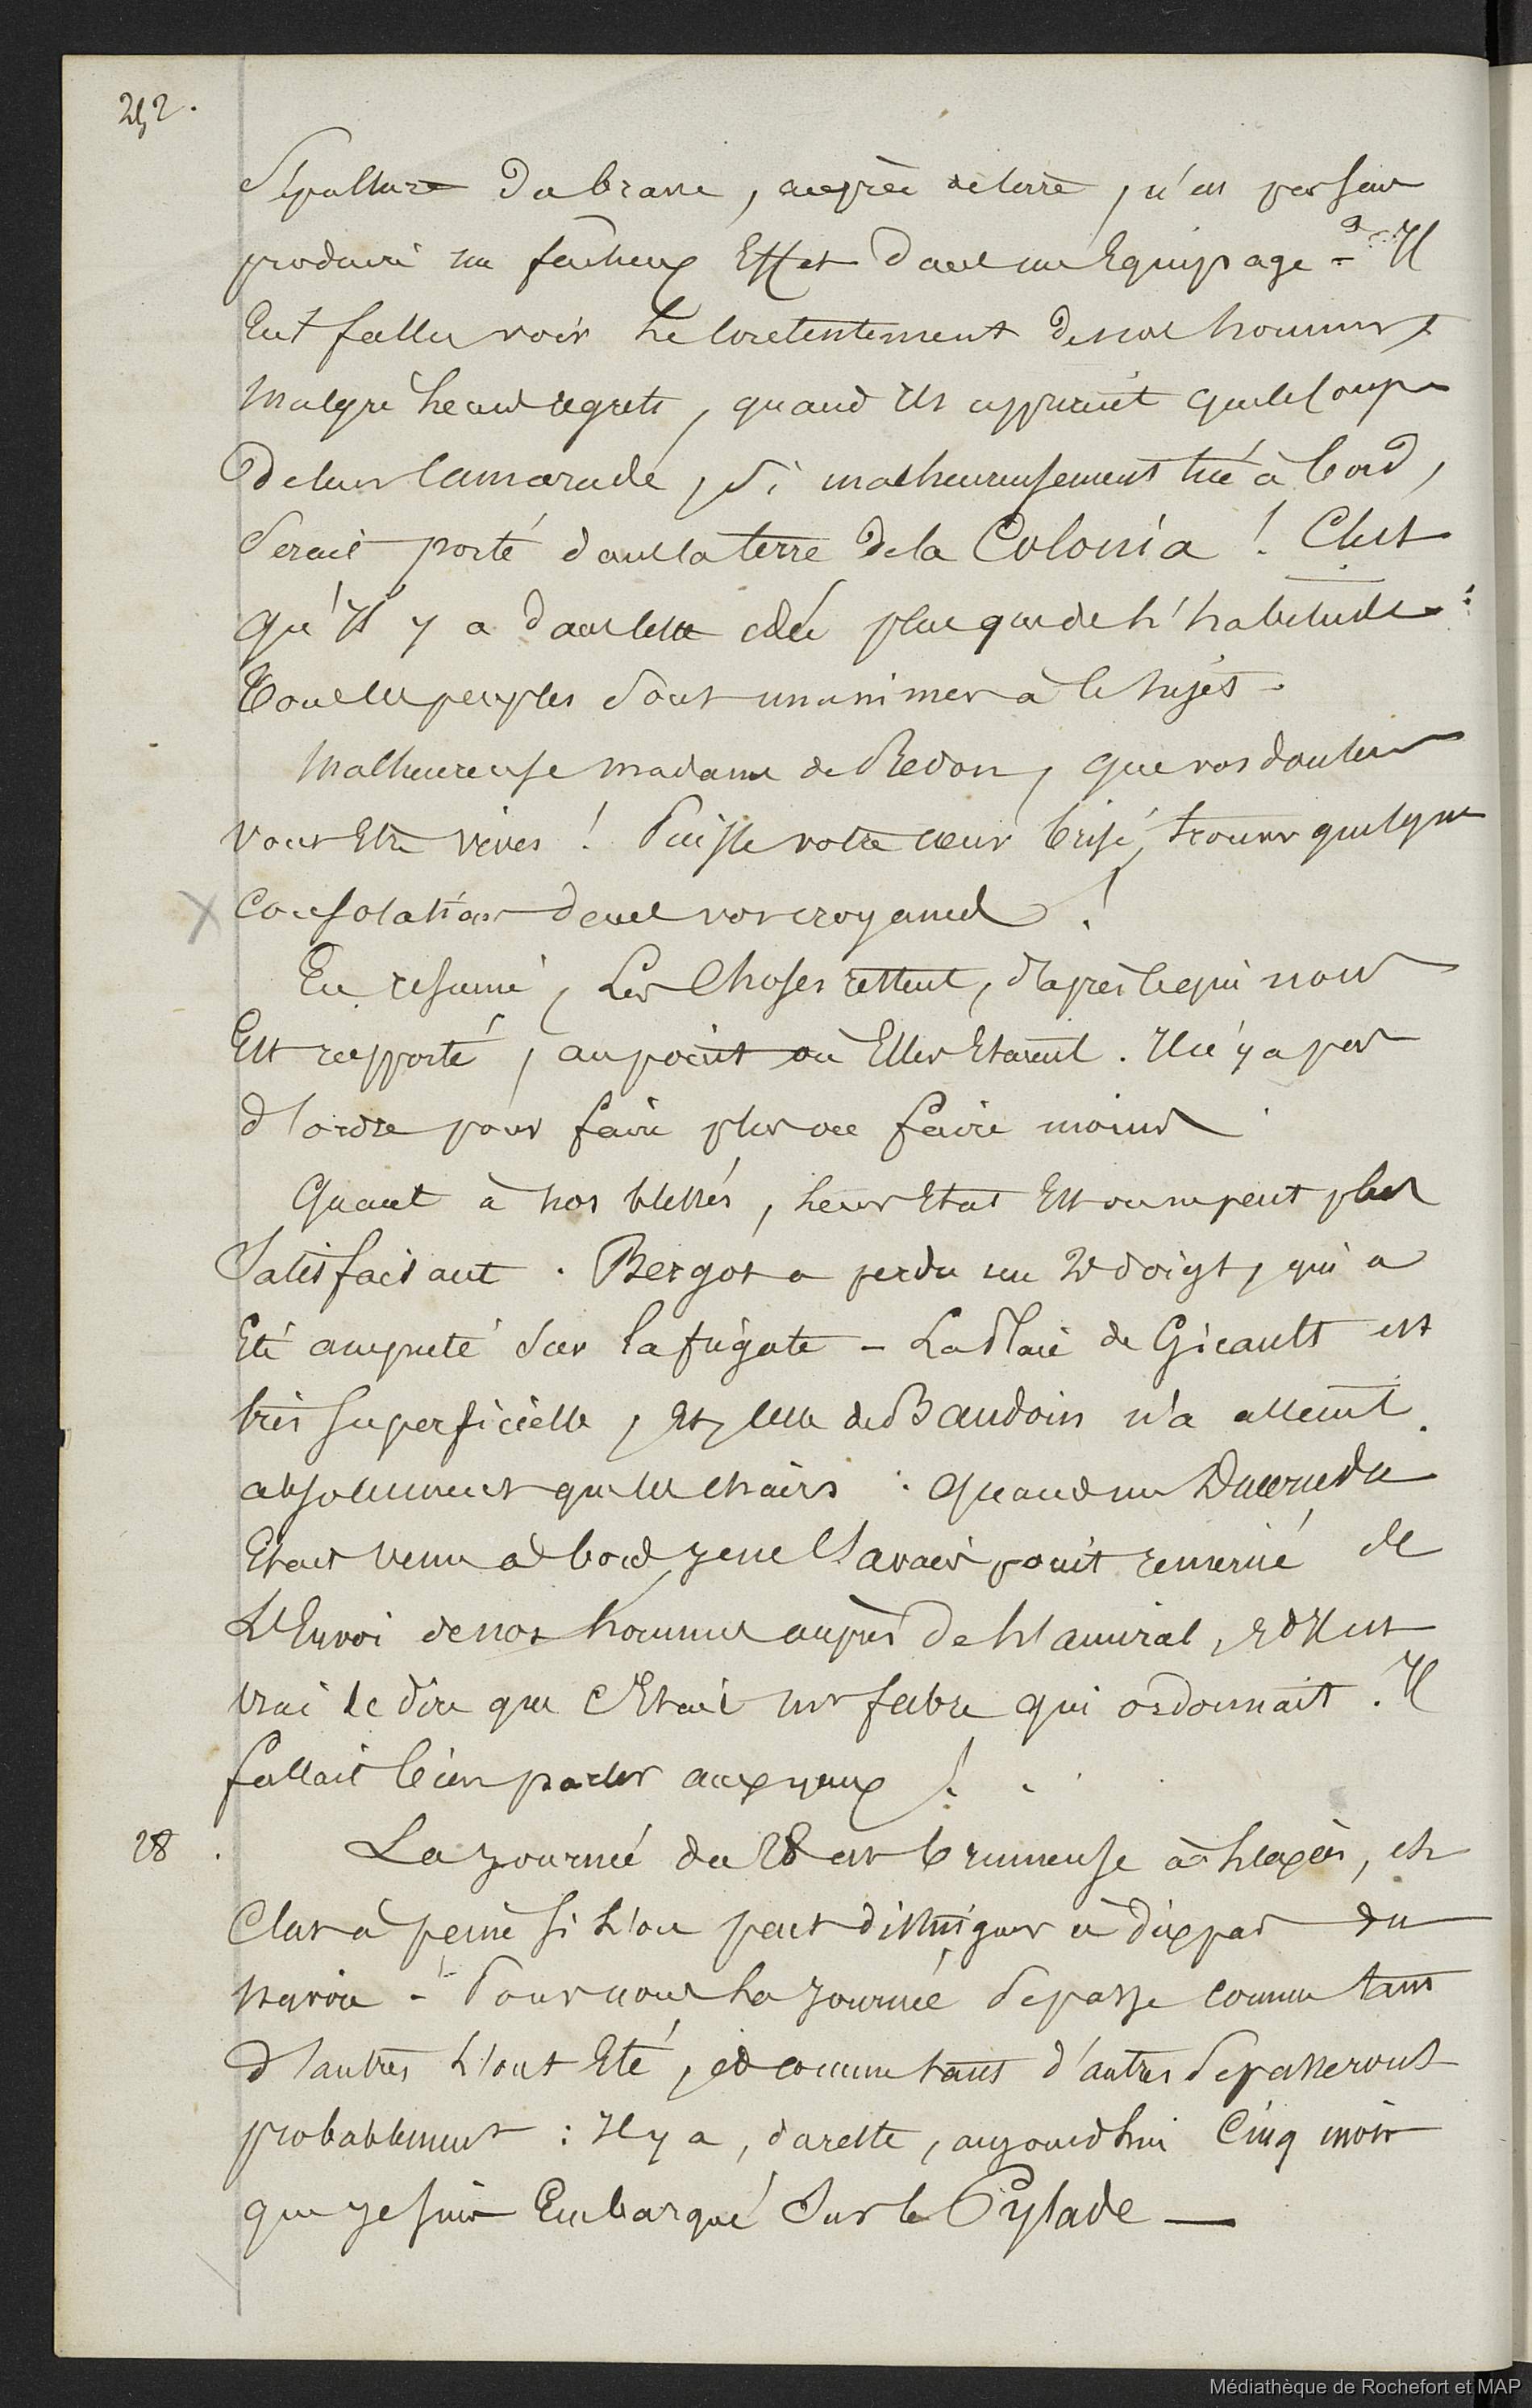 252.
Sépulture du brave, auprès de terre, n'eu pas sans
produire un fâcheux Effet dans un Equipage - Il
Eut fallu voir le contentement de nos hommes
malgré leurs regrets, quand ils apprirent que le corps
de leur Camarade, si malheureusement tué à bord,
serait porté dans la terre de la Colonia ! C'est
qu'Il y a dans cette idée plus que de l'habitude :
Tous les peuples sont unanimes à ce sujet.
Malheureuse madame de Redon, que vos douleurs
vont Etre vives ! Puisse votre cœur brisé, trouver quelque
Consolation dans vos croyances !
En resumé, Les Choses restent, d'après ce qui nous
Est rapporté, au point où Elles Etaient. Il n'y a pas
d'ordre pour faire plus ou faire moins
Quant à nos blessés, leur Etat Est on ne peut plus
Satisfaisant. Bergot a perdu un 2e doigt, qui a
Eté amputé sur la frégate - La Plaie de Gicault est
très superficielle, Et celle de Baudoin n'a atteint
absolument que les chairs : quand mr
Etait venu à bord, je ne l'avais point remercié de
L'Envoi de nos hommes auprès de l'amiral, Et Il est
vrai de dire que c'Etait mr febre qui ordonnait. Il
fallait bien parler aux yeux !
28. La journée du 28 est brumeuse à l'excès, et
C'est à peine si l'on peut distinguer à dix pas du
navire - Pour nous la journée se passe comme tant
d'autres l'ont Eté, et comme tant d'autres se passeront
probablement : Il y a, du reste, aujourd'hui Cinq mois
que je suis Embarqué Sur le Pylade —
Médiathèque de Rochefort et MAP